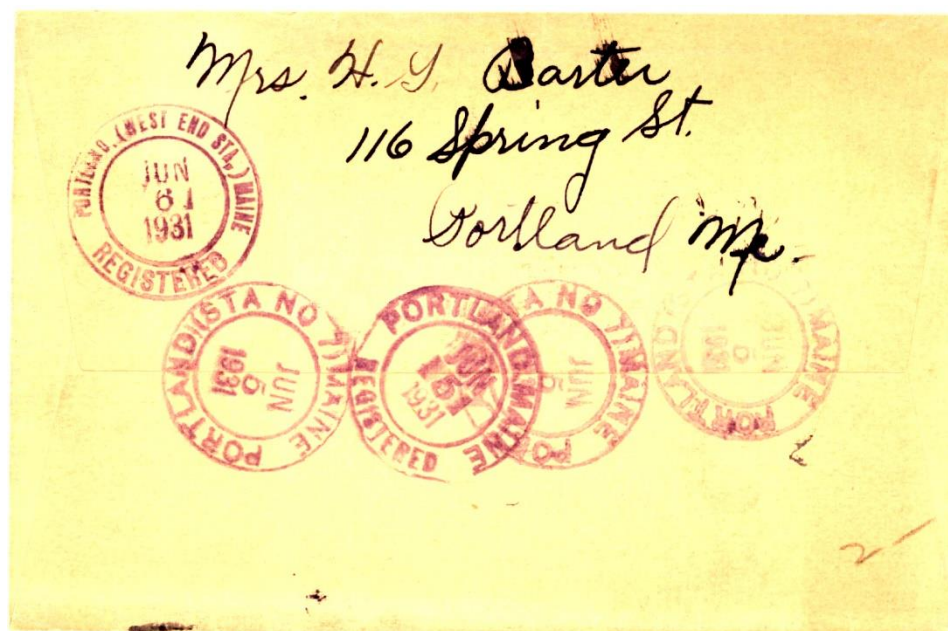 Mrs. H. Y. Barter
116 Spring St.
Portland Me.
PORTLAND, (WEST END STA,) MAINE
JUN
6
1931
REGISTERED
PORTLAND (STA NO 7) MAINE
JUN
5
1931
PORTLAND MAINE
JUN
5
1931
REGISTERED
PORTLAND STA NO 7) MAINE
JUN
5
PORTLAND MAINE
JUN
1931
2